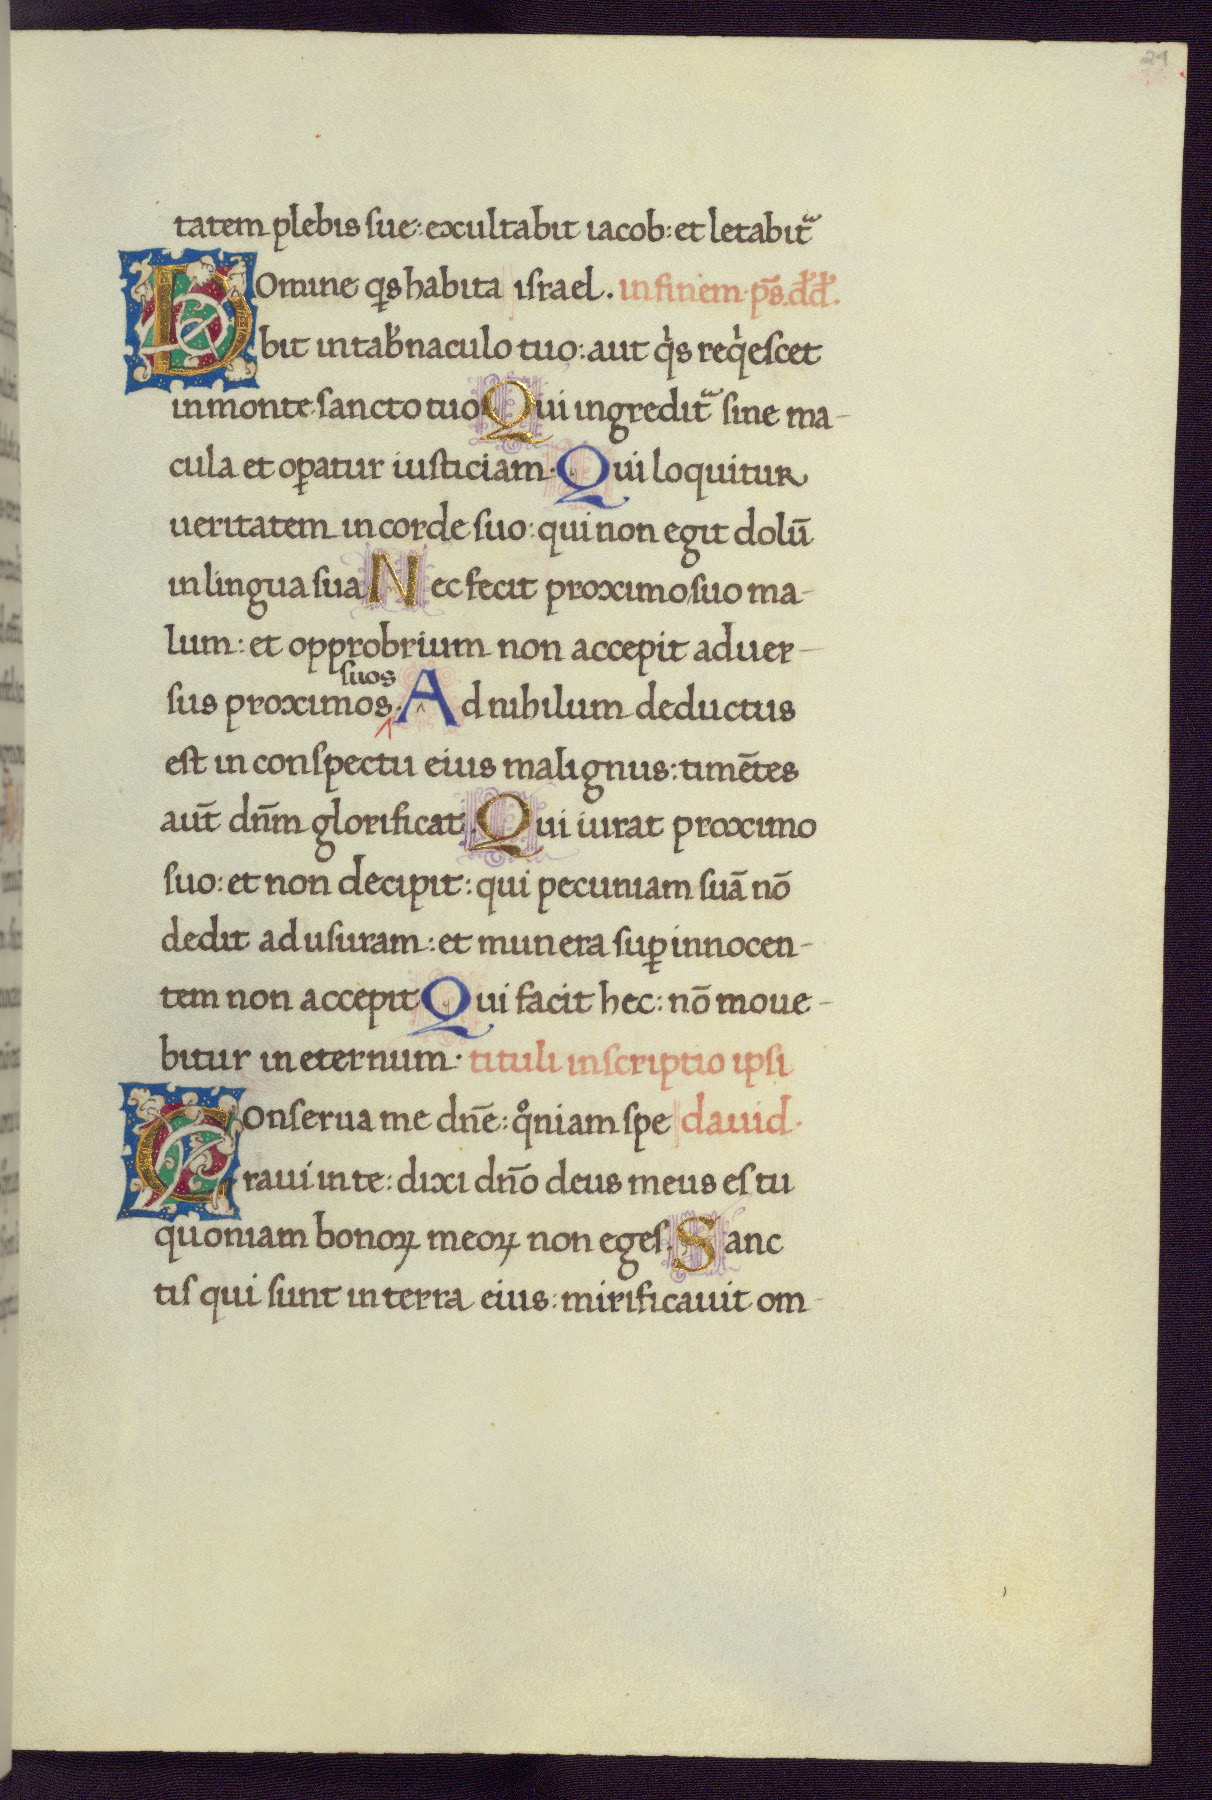 24
tatem plebis sue: excultabit iacob: et letabitᷓ
Domine qͥs habita israel. in finem. p̄s. dd̄.
bit in tab̄naculo tuo: aut qͥs reqͥescet
in monte sancto tuo Qui ingreditᷓ sine ma-
cula et oꝑatur iusticiam. Qui loquitur
ueritatem in corde suo: qui non egit dolū
in lingua sua Nec fecit proximo suo ma-
lum: et opprobrium non accepit aduer-
suos
sus proximos. Ad nihilum deductus
est in conspectu eius malignus: timētes
aut̄ dn̄m glorificat. Qui iurat proximo
suo: et non decipit: qui pecuniam suā nō
dedit ad usuram: et munera suꝑ innocen-
tem non accepit Qui facit hec: nō moue-
bitur in eternum. tituli inscriptio ipsi
Conserua me dn̄e: qͦniam spe dauid.
raui in te: dixi dn̄o deus meus es tu
quoniam bonoꝝ meoꝝ non eges. Sanc
tis qui sunt in terra eius: mirificauit om-